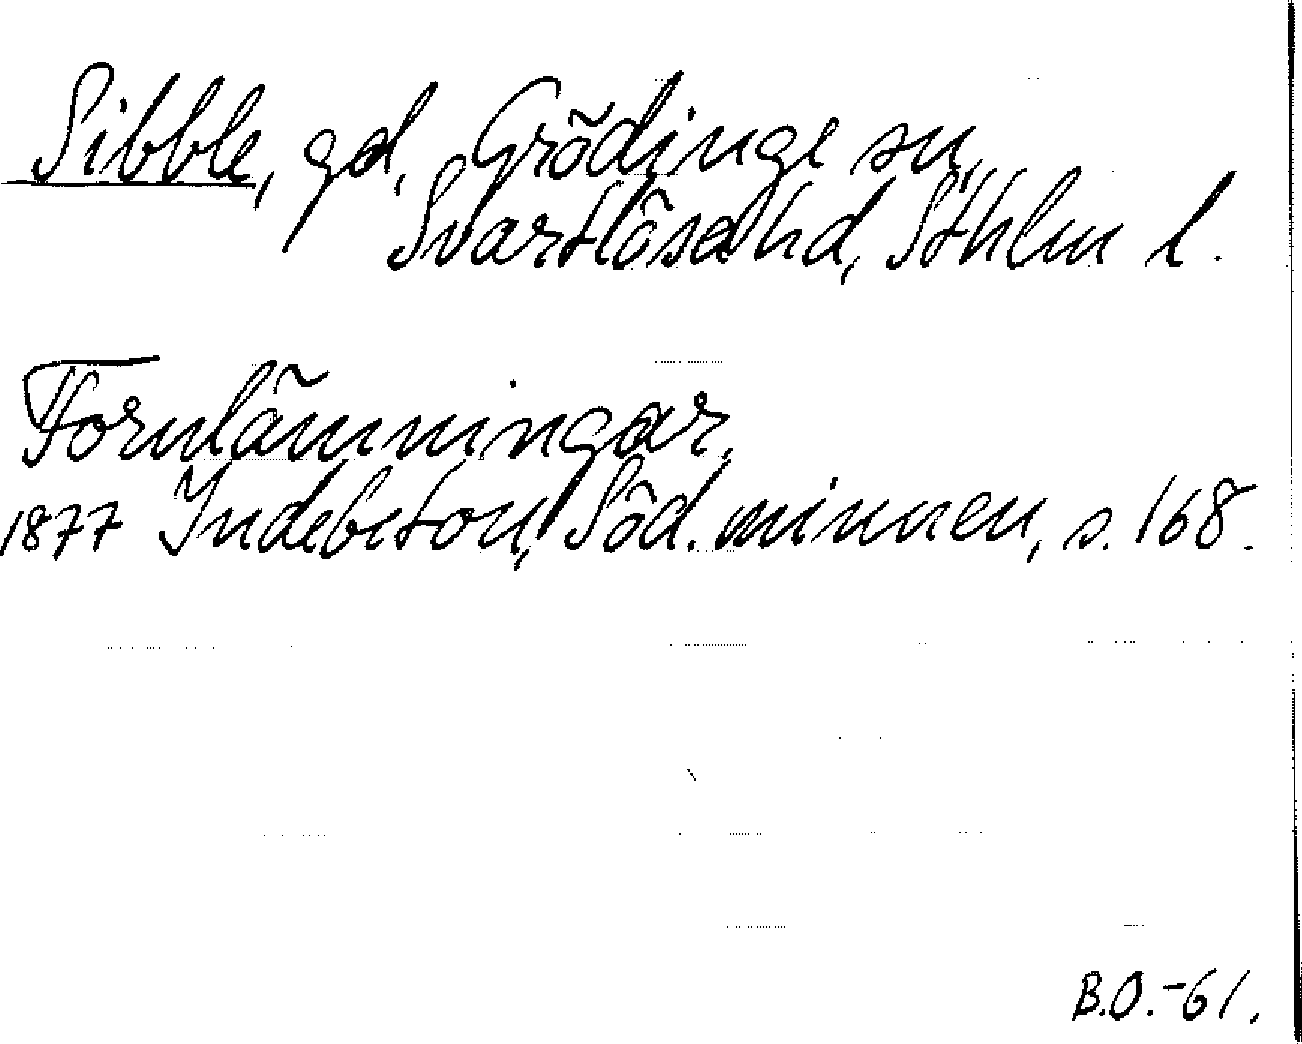 Sibble, gd, Grödinge sn,
Svartlösa hd, Sthlm l.
Fornlämningar.
1877 Indebetou, Söd. minnen, s. 168.
B.O.-61.